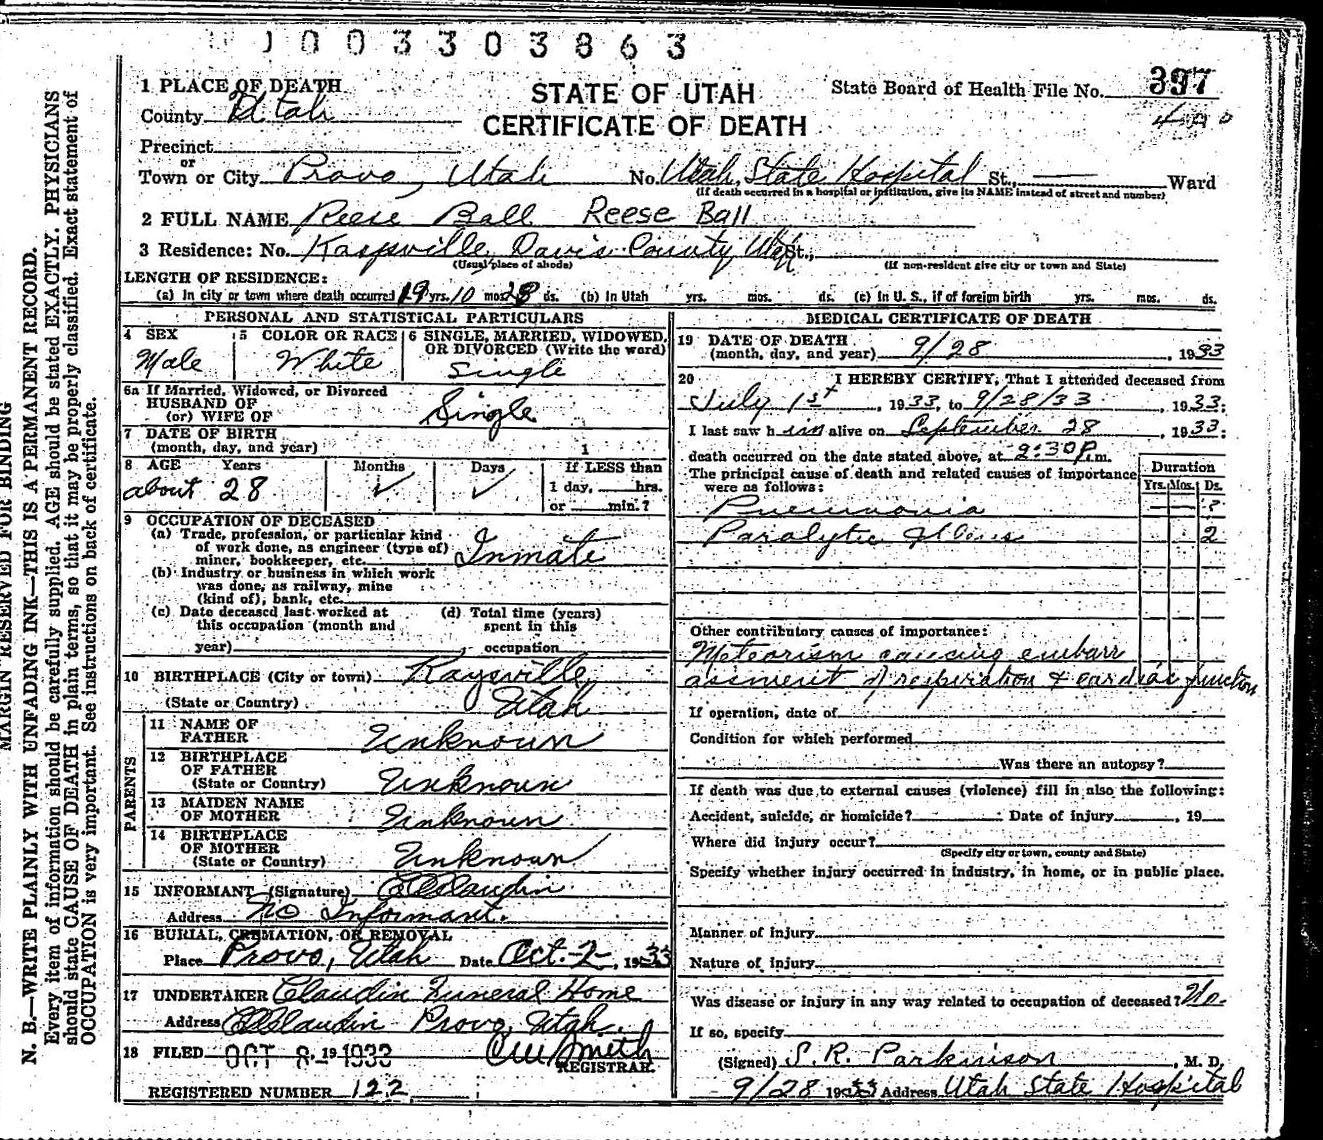 1003303863
1 PLACE OF DEATH
STATE OF UTAH
CERTIFICATE OF DEATH
State Board of Health File No. 397
County Utah
Precinct
or
Town or City Provo, Utah No. Utah State Hospital St., Ward
(If death occurred in a hospital or institution, give its NAME instead of street and number)
2 FULL NAME Reese Ball Reese Ball
3 Residence: No. Kaysville Davis County Utah St.,
(Usual place of abode) (If non-resident give city or town and State)
LENGTH OF RESIDENCE:
(a) In city or town where death occurred 19 yrs. 10 mos. 28 ds. (b) In Utah yrs. mos. ds. (c) In U. S., if of foreign birth yrs. mos. ds.
PERSONAL AND STATISTICAL PARTICULARS
4 SEX
Male
5 COLOR OR RACE
White
6 SINGLE, MARRIED, WIDOWED,
OR DIVORCED (Write the word)
Single
6a If Married, Widowed, or Divorced
HUSBAND OF
(or) WIFE OF
Single
7 DATE OF BIRTH
(month, day, and year)
8 AGE Years Months Days If LESS than
about 28 ✓ ✓ 1 day, hrs.
or min.?
9 OCCUPATION OF DECEASED
(a) Trade, profession, or particular kind
of work done, as engineer (type of)
miner, bookkeeper, etc. Inmate
(b) Industry or business in which work
was done, as railway, mine
(kind of), bank, etc.
(c) Date deceased last worked at
this occupation (month and
year)
(d) Total time (years)
spent in this
occupation
10 BIRTHPLACE (City or town) Kaysville,
(State or Country) Utah
PARENTS
11 NAME OF
FATHER Unknown
12 BIRTHPLACE
OF FATHER
(State or Country) Unknown
13 MAIDEN NAME
OF MOTHER Unknown
14 BIRTHPLACE
OF MOTHER
(State or Country) Unknown
15 INFORMANT (Signature) Claudin
Address No Informant.
16 BURIAL, CREMATION, OR REMOVAL
Place Provo, Utah Date Oct. 2, 1933
17 UNDERTAKER Claudin Funeral Home
Address Claudin Provo, Utah.
18 FILED OCT 8, 19 1933 Smith
REGISTRAR.
REGISTERED NUMBER 122
MEDICAL CERTIFICATE OF DEATH
19 DATE OF DEATH
(month, day, and year) 9/28, 1933
20 I HEREBY CERTIFY, That I attended deceased from
July 1st, 1933, to 9/28/33, 1933;
I last saw him alive on September 28, 1933;
death occurred on the date stated above, at 9:30P.m.
The principal cause of death and related causes of importance
were as follows:
Duration
Yrs. Mos. Ds.
Pneumonia ?
Paralytic Illeus 2
Other contributory causes of importance:
Meteorism causing embarr
assment of respiration & cardiac function
If operation, date of
Condition for which performed
Was there an autopsy?
If death was due to external causes (violence) fill in also the following:
Accident, suicide, or homicide? Date of injury, 19
Where did injury occur?
(Specify city or town, county and State)
Specify whether injury occurred in industry, in home, or in public place.
Manner of injury
Nature of injury
Was disease or injury in any way related to occupation of deceased? No.
If so, specify
(Signed) S. R. Parkinson, M. D.
9/28 1933 Address Utah State Hospital
MARGIN RESERVED FOR BINDING
N. B.—WRITE PLAINLY WITH UNFADING INK—THIS IS A PERMANENT RECORD.
Every item of information should be carefully supplied. AGE should be stated EXACTLY. PHYSICIANS
should state CAUSE OF DEATH in plain terms, so that it may be properly classified. Exact statement of
OCCUPATION is very important. See instructions on back of certificate.